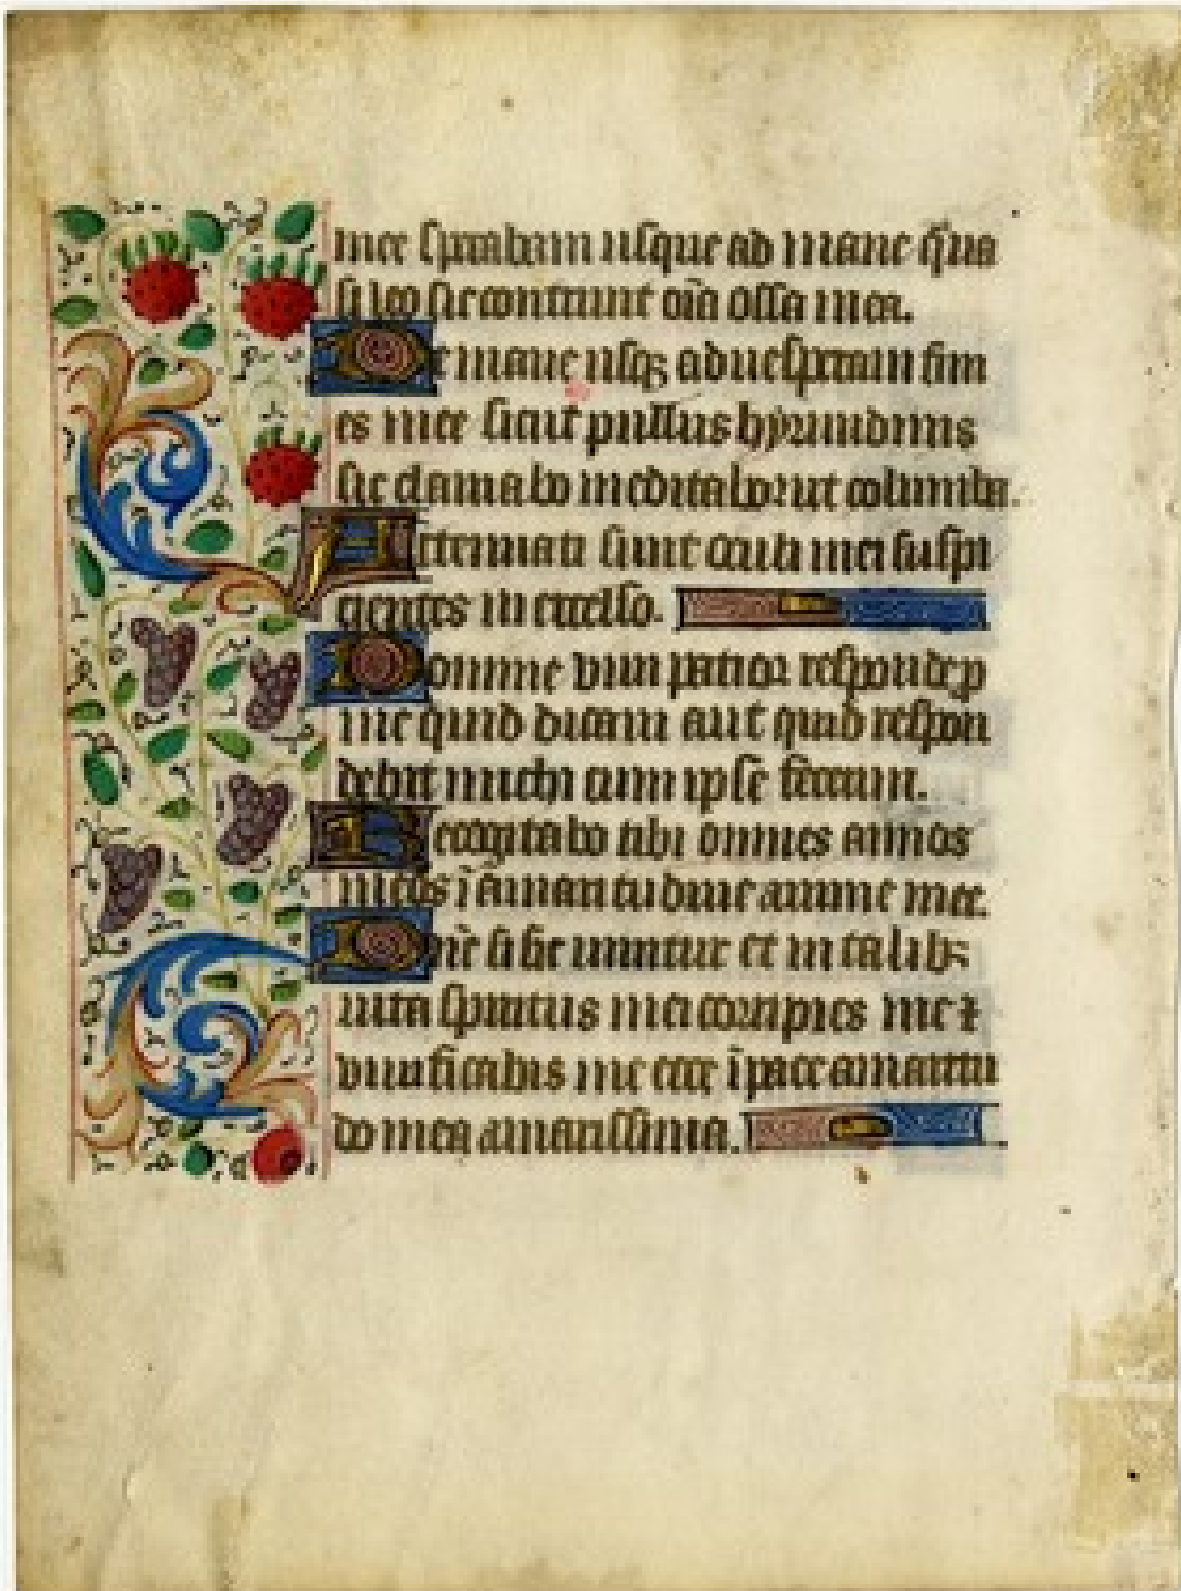 mee sperabam usque ad mane q̃ua
si leo sic contriuit oĩa ossa mea.
De mane usqꝫ ad uesperam fini
es mee sicut pullus hyrundinis
sic clamabo meditabor ut columba.
Attenuati sunt oculi mei suspi
cientes in excelso.
Domine vim patior responde p
me quid dicam aut quid respon
debit michi cum ipse fecerim.
Recogitabo tibi omnes annos
meos ĩ amaritudine anime mee.
Dñe si sic uiuitur et in talibꝫ
uita spiritus mei corripies me ⁊
viuificabis me ecce ĩ pace amaritu
do mea amarissima.